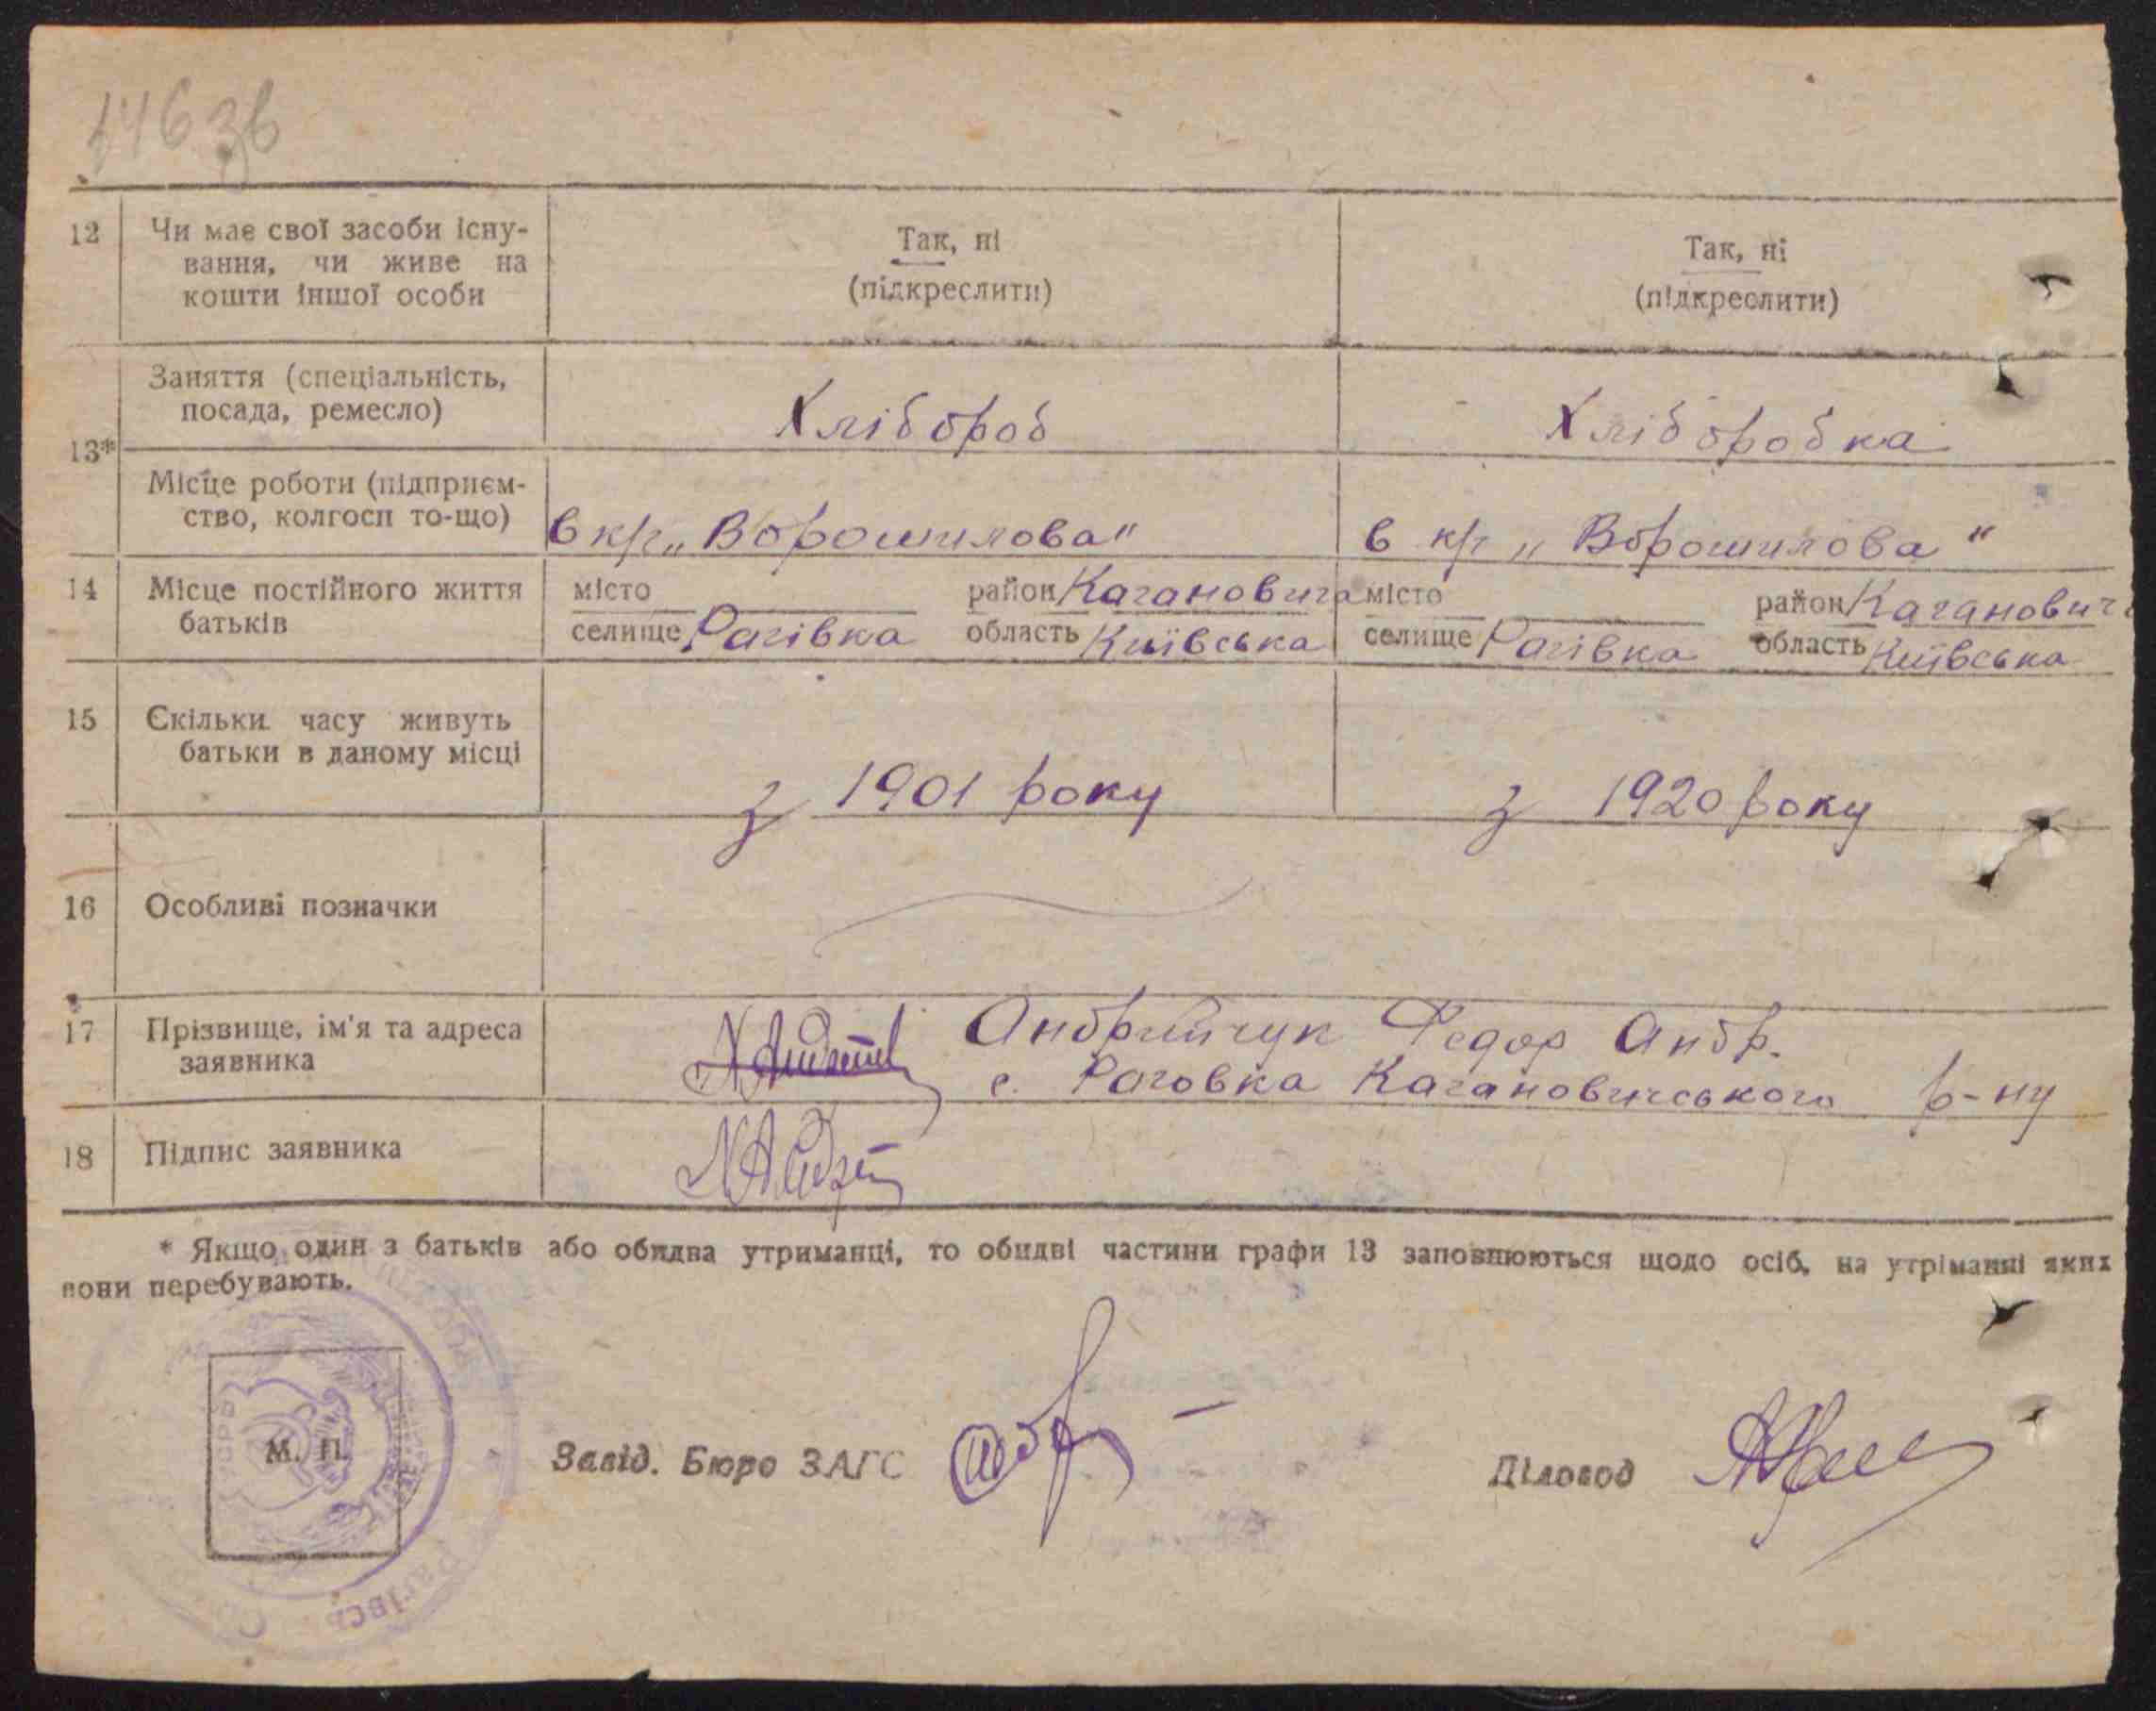 146 зв
12 Чи має свої засоби існу-
вання, чи живе на
кошти іншої особи
Так, ні
(підкреслити)
Так, ні
(підкреслити)
13* Заняття (спеціальність,
посада, ремесло)
Хлібороб
Хлібороб ка
Місце роботи (підприєм-
ство, колгосп то-що)
в к/г „Ворошилова"
в к/г „Ворошилова"
14 Місце постійного життя
батьків
місто
селище Рагівка
район Кагановича
область Київська
місто
селище Рагівка
район Каганович
область Київська
15 Скільки часу живуть
батьки в даному місці
з 1901 року
з 1920 року
16 Особливі позначки
17 Прізвище, ім'я та адреса
заявника
Андрийчук Федор Андр.
с. Раговка Кагановичського р-ну
18 Підпис заявника
* Якщо один з батьків або обидва утриманці, то обидві частини графи 13 заповнюються щодо осіб, на утріманні яких
вони перебувають.
М. П.
Завід. Бюро ЗАГС
Діловод